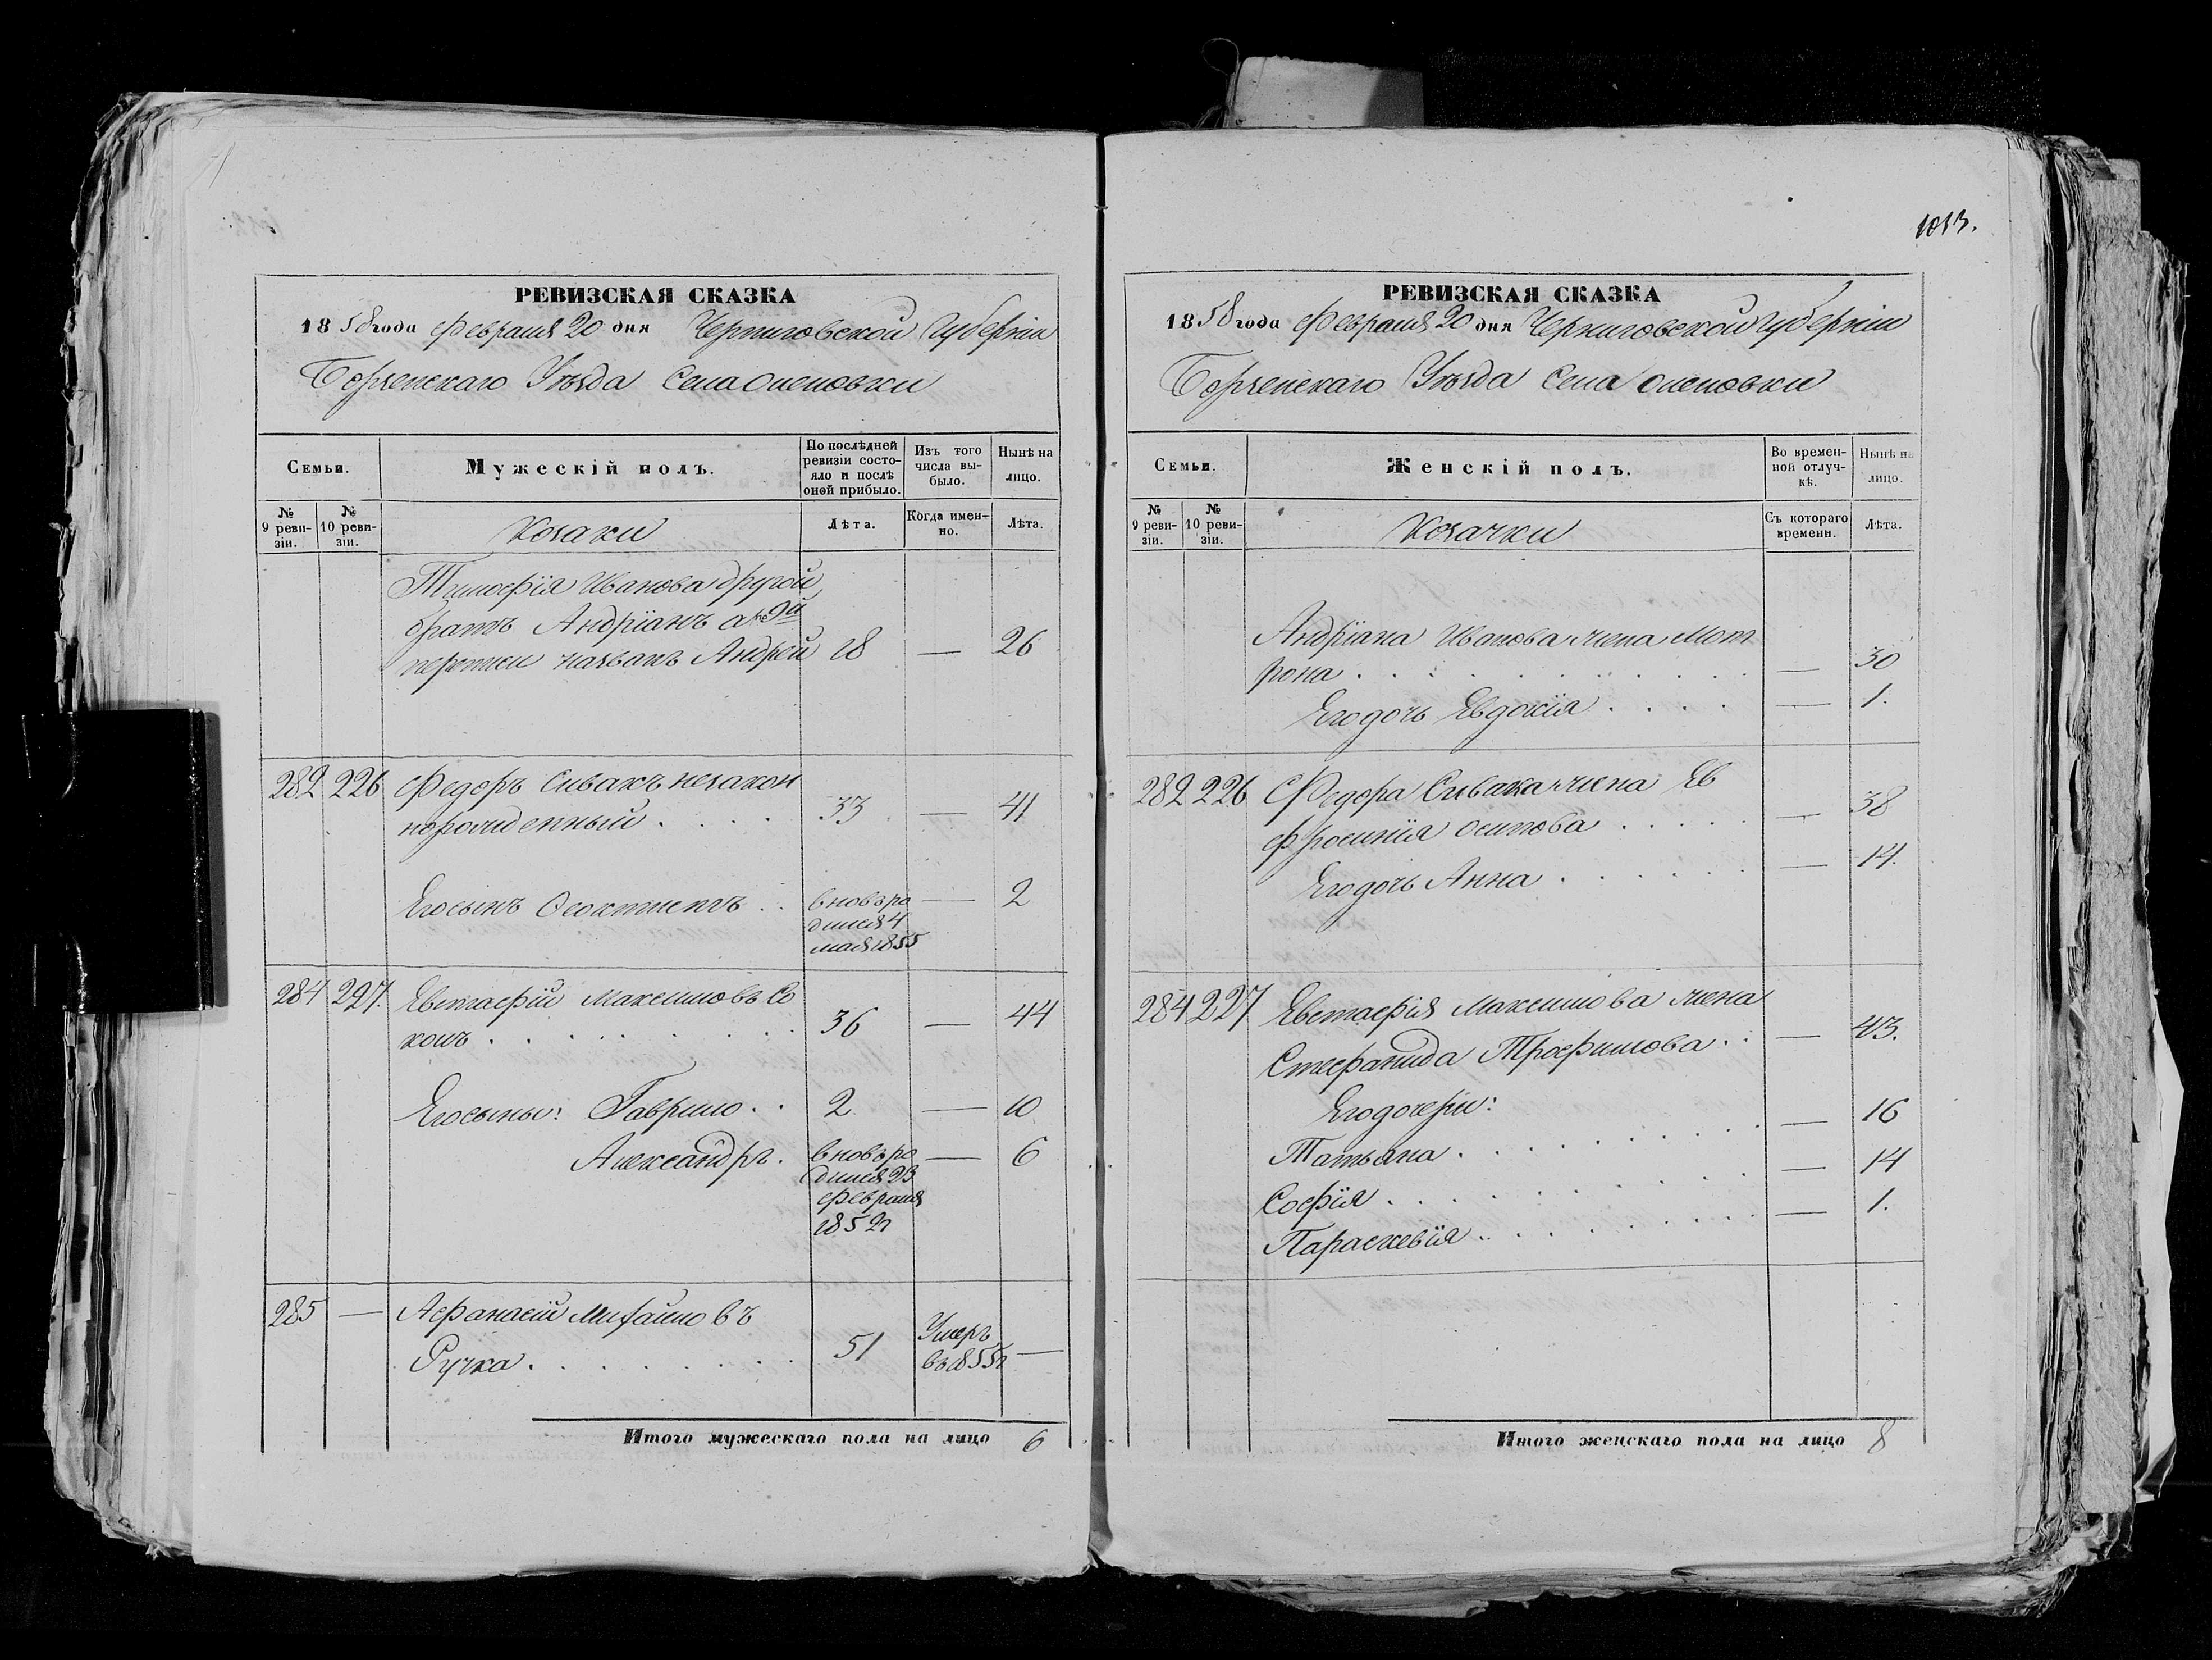 РЕВИЗСКАЯ СКАЗКА
1858 года Февраля 20 дня Черниговской Губерніи
Борзенскаго Уѣзда Села Оленовки
Семьи.
Мужескій полъ.
По послѣдней ревизіи состояло и послѣ оной прибыло.
Изъ того числа выбыло.
Нынѣ на лицо.
№ 9 ревизіи.
№ 10 ревизіи.
Козаки
Лѣта.
Когда именно.
Лѣта.
Тимофѣя Иванова другой
братъ Андріянъ а по 9й
переписи названъ Андрей 18 — 26
282 226 Федоръ Сивакъ незакон
норожденный . . . . 33 — 41
Его сынъ Феоктистъ . . вновь ро — 2
дился 4
мая 1855
284 227. Евстафій Максимовъ Со
колъ . . . . . . . . 36 — 44
Его сыны: Гаврило . . 2. — 10
Александръ. вновь ро — 6
дился 23
февраля
1852 г
285 — Афанасій Михайловъ
Ручка . . . . . . . . 51 Умеръ
въ 1855 г —
Итого мужескаго пола на лицо 6
1013.
РЕВИЗСКАЯ СКАЗКА
1858 года Февраля 20 дня Черниговской Губерніи
Борзенскаго Уѣзда Села Оленовки
Семьи.
Женскій полъ.
Во временной отлучкѣ.
Нынѣ на лицо.
№ 9 ревизіи.
№ 10 ревизіи.
Козачки
Съ котораго времени.
Лѣта.
Андріяна Иванова жена Мот
рона . . . . . . . . . — 30
Его дочь Евдокія . . . . — 1.
282 226 Федора Сивака жена Ев
фросинія Осипова . . . . . — 38
Его дочь Анна . . . . . . — 14.
284 227 Евстафія Максимова жена
Стефанида Трофимова . . — 43.
Его дочери:
Татьяна . . . . . . . . . . — 16
Софія . . . . . . . . . . . — 14
Параскевія . . . . . . . . — 1.
Итого женскаго пола на лицо 8